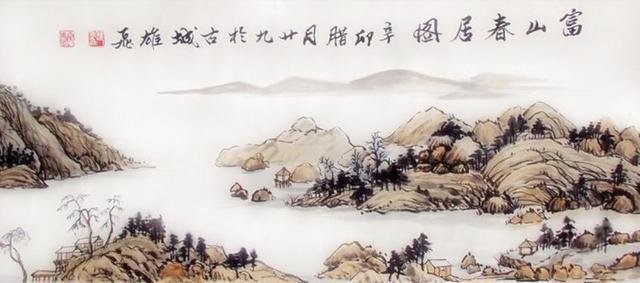 富山春居图辛卯腊月廿九於古城雄